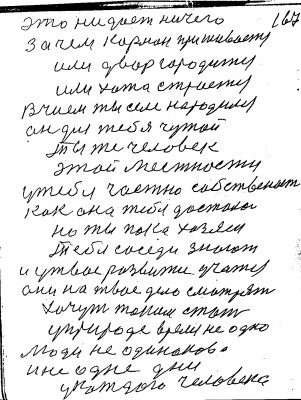 это ни дает ничего 167
зачем карман пришивает
или двор городить
или хата строеть
в чием ты селе народилсе
он для тебя чутой
Ты те человек
этой местности
у тебя частно собственост
как она тебе достолос
но ты пока хазяен
Тебя соседи знают
и у твае развитие учатse
они на твае дело смотрят
хочут таким стат
у природе время не одно
люди не одинаково
и не одне дни
у каждого человека